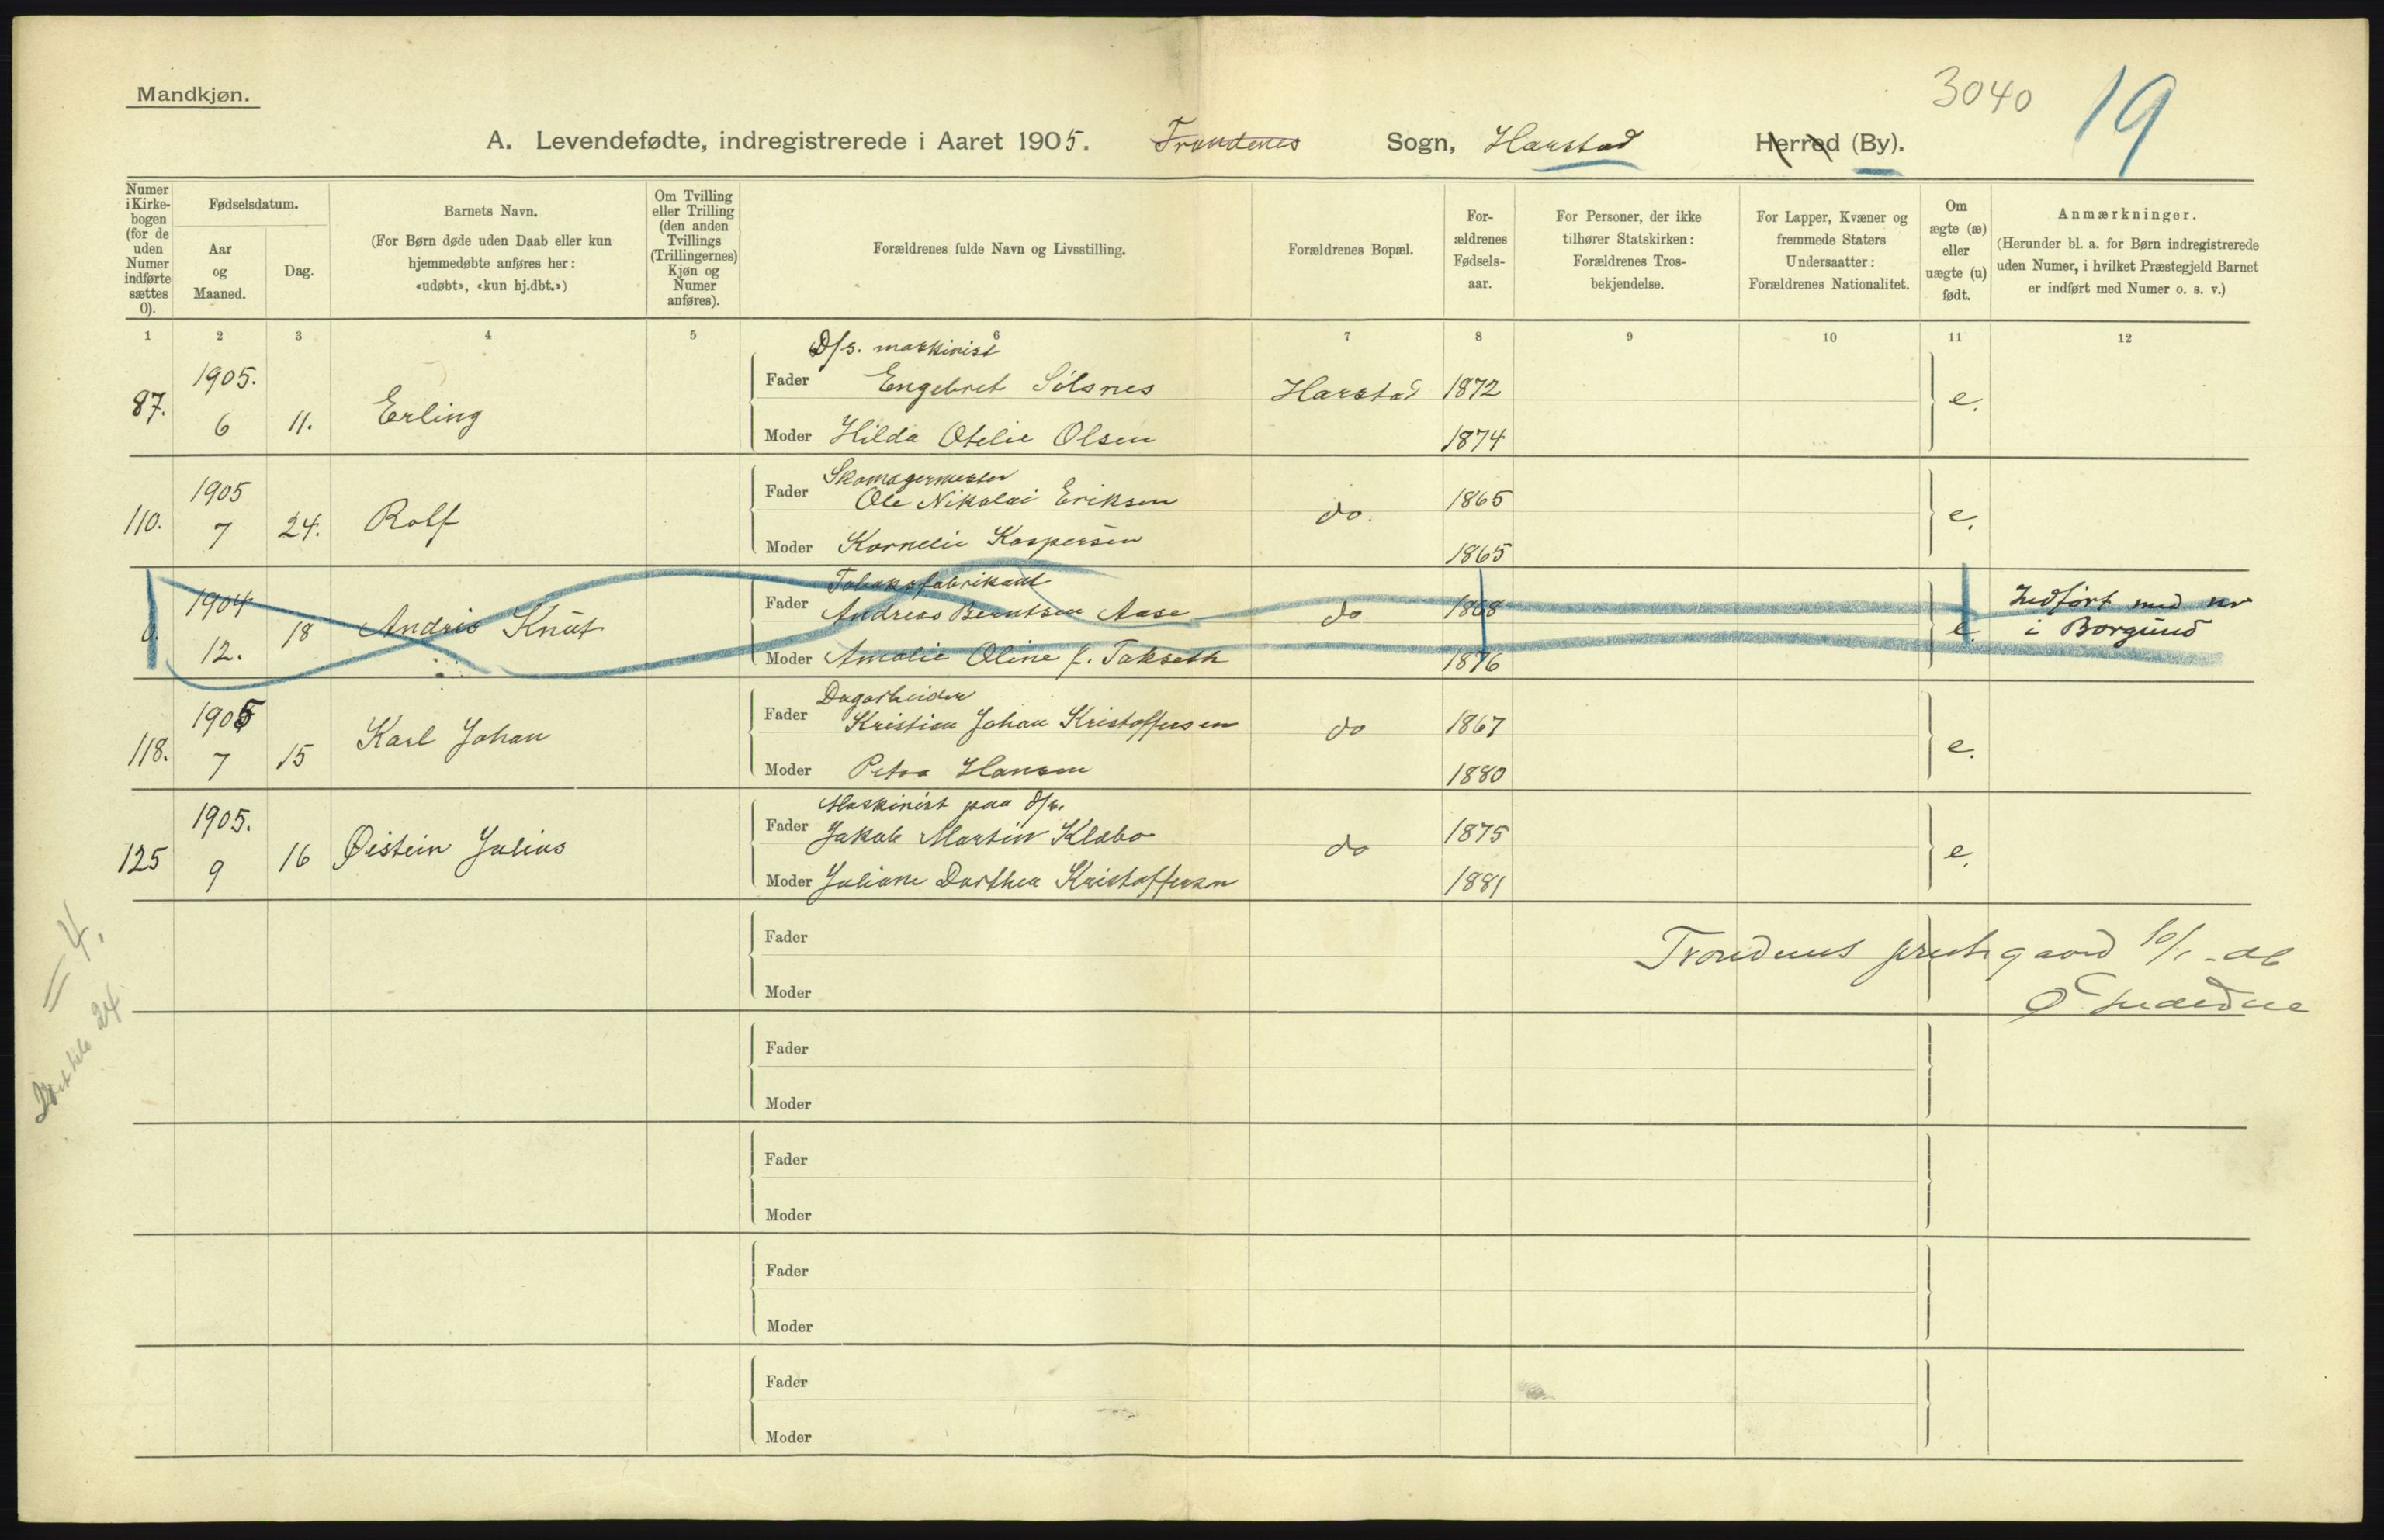 Mandkjøn.
3040
19
A. Levendefødte, indregistrerede i Aaret 1905. Trondenes Sogn, Harstad Herred (By).
Numer i Kirke-bogen (for de uden Numer indførte sættes 0).
Fødselsdatum.
Aar og Maaned.
Dag.
Barnets Navn.
(For Børn døde uden Daab eller kun hjemmedøbte anføres her: «udøbt», «kun hj.dbt.»)
Om Tvilling eller Trilling (den anden Tvillings (Trillingernes) Kjøn og Numer anføres).
Forældrenes fulde Navn og Livsstilling.
Forældrenes Bopæl.
For-ældrenes Fødsels-aar.
For Personer, der ikke tilhører Statskirken: Forældrenes Tros-bekjendelse.
For Lapper, Kvæner og fremmede Staters Undersaatter: Forældrenes Nationalitet.
Om ægte (æ) eller uægte (u) født.
Anmærkninger.
(Herunder bl. a. for Børn indregistrerede uden Numer, i hvilket Præstegjeld Barnet er indført med Numer o. s. v.)
1 2 3 4 5 6 7 8 9 10 11 12
D/s. maskinist
87. 1905. 6 11. Erling Fader Engebret Sølsnes Harstad 1872 e.
Moder Hilda Otelie Olsen 1874
Skomagermester
110. 1905 7 24. Rolf Fader Ole Nikolai Eriksen do. 1865 e.
Moder Kornelie Kaspersen 1865
Tobaksfabrikant
0. 1904 12. 18 Andris Knut Fader Andreas Berntsen Aase do 1868 e. Indført med nr i Borgund
Moder Amalie Oline f. Takseth 1876
Dagarbeider
118. 1905 7 15 Karl Johan Fader Kristian Johan Kristoffersen do 1867 e.
Moder Petra Hansen 1880
Maskinist paa d/s.
125 1905. 9 16 Øistein Julius Fader Jakob Martin Klæbo do 1875 e.
Moder Juliane Dorthea Kristoffersen 1881
= 4.
24
Fader
Trondenes prestegaard 10/1 - 06
Moder
Fader
Moder
Fader
Moder
Fader
Moder
Fader
Moder